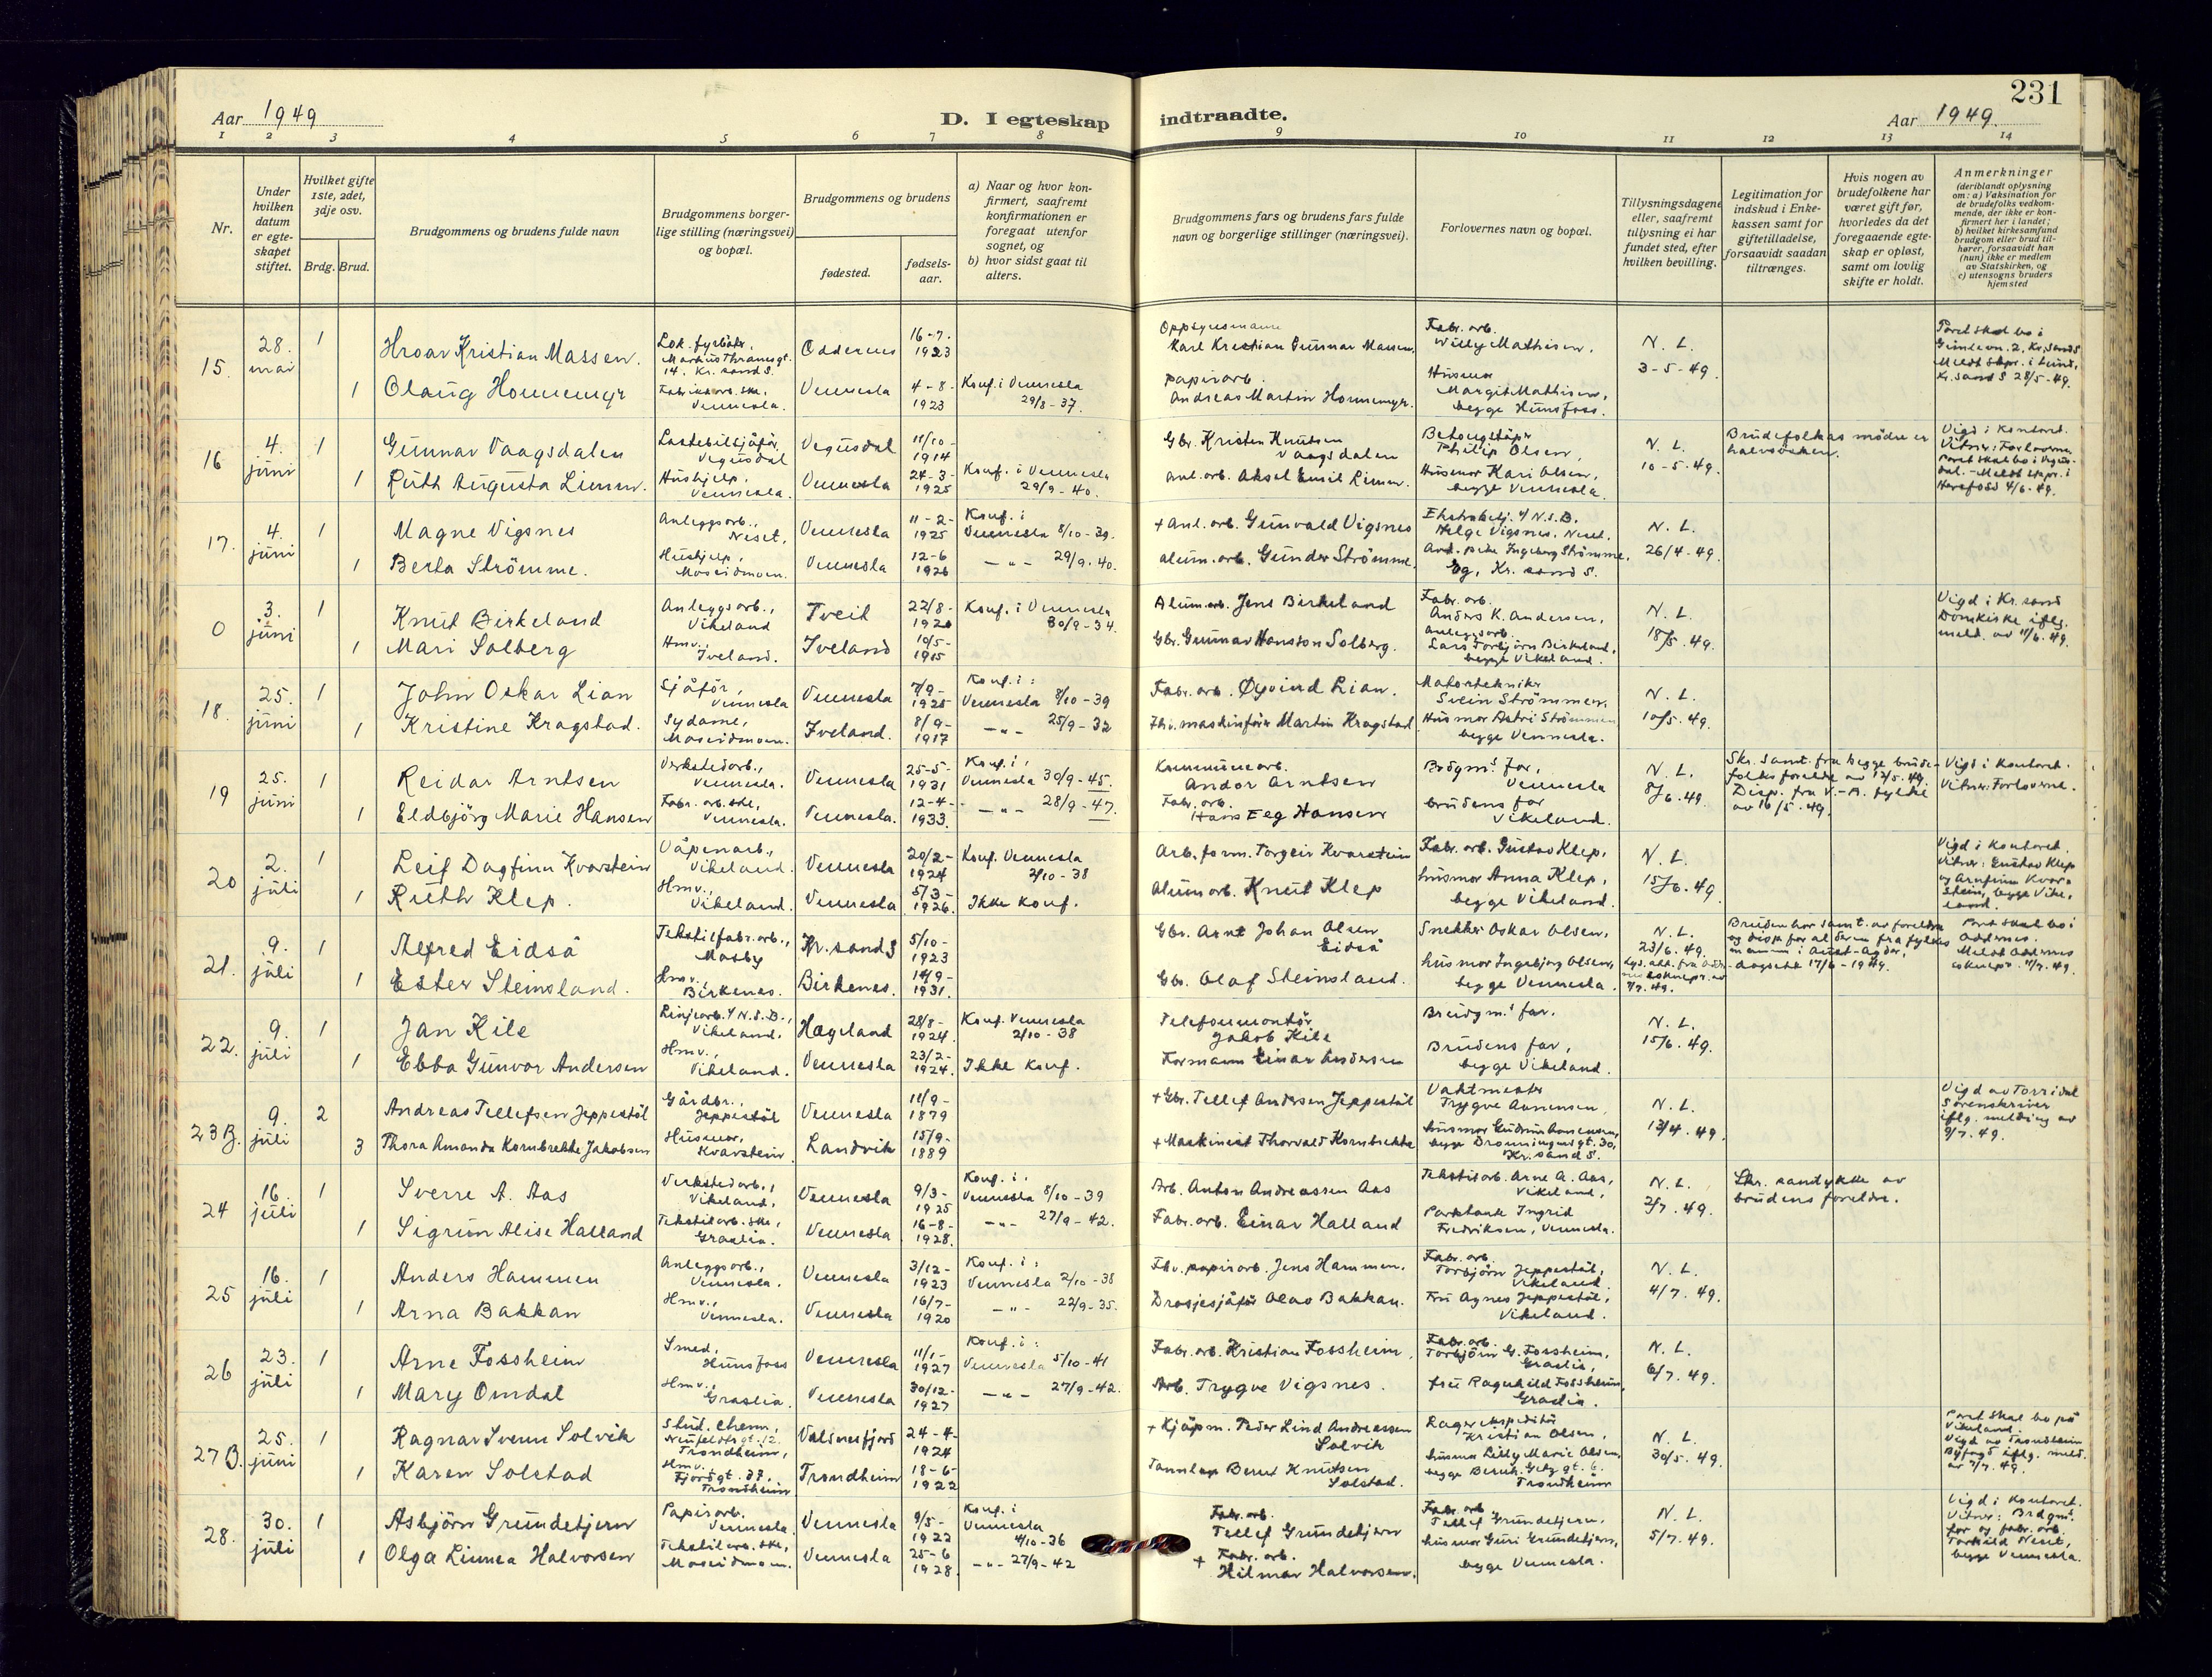 231
Aar 1949
D. I egteskap indtraadte.
Aar 1949.
1 2 3 4 5 6 7 8 9 10 11 12 13 14
Nr.
Under hvilken datum er egteskapet stiftet.
Hvilket gifte 1ste, 2det, 3dje osv.
Brdg. Brud.
Brudgommens og brudens fulde navn
Brudgommens borgerlige stilling (næringsvei) og bopæl.
Brudgommens og brudens
fødested.
fødselsaar.
a) Naar og hvor konfirmert, saafremt konfirmationen er foregaat utenfor sognet, og
b) hvor sidst gaat til alters.
Brudgommens fars og brudens fars fulde navn og borgerlige stillinger (næringsvei).
Forlovernes navn og bopæl.
Tillysningsdagene eller, saafremt tillysning ei har fundet sted, efter hvilken bevilling.
Legitimation for indskud i Enkekassen samt for giftetilladelse, forsaavidt saadan tiltrænges.
Hvis nogen av brudefolkene har været gift før, hvorledes da det foregaaende egteskap er opløst, samt om lovlig skifte er holdt.
Anmerkninger (deriblandt oplysning om: a) Vaksination for de brudefolks vedkommende, der ikke er konfirmert her i landet; b) hvilket kirkesamfund brudgom eller brud tilhører, forsaavidt han (hun) ikke er medlem av Statskirken, og c) utensogns bruders hjemsted
15. 28. mai 1 Hroar Kristian Massen. Lok. fyrbøter, Markus Thranesgt. 14. Kr. sand S. Oddernes 16-7. 1923 Oppsynsmann Karl Kristian Gunnar Massen, Fabr. orb. Willy Mathisen, N. L. 3-5-49. Paret skal bo i
1 Olaug Hommemyr Fabrikkarb. ske, Vennesla. Vennesla 4-8- 1923 Konf. i Vennesla 29/8-37. papirarb. Andreas Martin Hommemyr. Husmor Margit Mathisen, begge Hunsfoss. Kr. sand S 28/5-49.
16 4. juni 1 Gunnar Vaagsdalen Lastebilsjåfør, Vegusdal Vegusdal 11/10- 1914 Gbr. Kristen Knutsen Vaagsdalen Philip Olsen, N. L. 10-5-49. Brudefolkas mødre er halvsøsken. Vigd i kontoret. Vitner: Forloverne. Paret skal bo i Vegusdal. - Meldt skpr. i Herefoss 4/6-49.
1 Ruth Augusta Limm. Hushjelp, Vennesla. Vennesla 24-3- 1925 Konf. i Vennesla 29/9-40. anl. arb. Aksel Emil Limm. Husmor Kari Olsen, begge Vennesla.
17. 4. juni 1 Magne Vigsnes Anleggsarb., Neset, Vennesla 11-2- 1925 Konf. i Vennesla 8/10-39. + Anl. arb. Gunvald Vigsnes Ekstrabetj. v/ N.S.B. Helge Vigsnes, Neset. N. L. 26/4-49.
1 Berta Strömme. Hushjelp, Moseidmoen. Vennesla 12-6 1926 -"- 29/9-40. alum. arb. Gunder Strömme. Ingeborg Strömme, Eg, Kr. sand S.
0 3. juni 1 Knut Birkeland Anleggsarb., Vikeland Tveit 22/8- 1920 Konf. i Vennesla 30/9-34. Alum. arb. Jens Birkeland Fabr. orb. Anders K. Andersen, N. L. 18/5-49. Vigd i Kr. sand Domkirke iflg. meld. av 11/6-49.
1 Mari Solberg Hmv., Iveland. Iveland 10/5- 1915 Gbr. Gunnar Hansson Solberg. anleggsarb. Lars Torbjörn Birkeland, begge Vikeland.
18. 25. juni 1 John Oskar Lian Sjåför, Vennesla Vennesla 7/9- 1925 Konf. i: Vennesla 8/10-39 Fabr. orb. Øyvind Lian. Motortekniker Svein Strömmen, N. L. 10/5-49.
1 Kristine Kragstad. Sydame, Moseidmoen. Iveland. 8/9- 1917 -"- 25/9-32 fhv. maskinförer Martin Kragstad Husmor Astri Strömmen begge Vennesla.
19 25. juni 1 Reidar Arntsen Verkstedarb., Vennesla. Vennesla 25-5- 1931 Konf. i: Vennesla 30/9-45. Kommunearb. Andor Arntsen Brdgm.s far, Vennesla N. L. 8/6-49. Skr. samt. fra begge brudefolks foreldre av 12/5-49. Disp. fra V.-A. fylke av 16/5-49. Vigd i kontoret. Vitner: Forloverne.
1 Eldbjörg Marie Hansen Fabr. orb. ske, Vennesla. Vennesla. 12-4- 1933. -"- 28/9-47. Fabr. orb. Hans Eeg Hansen brudens far Vikeland.
20 2. juli 1 Leif Dagfinn Kvarstein Våpenarb., Vikeland. Vennesla 20/2- 1924 Konf. Vennesla 2/10-38 Arb. form. Torgeir Kvarstein Fabr. orb. Gustav Klep, N. L. 15/6-49. Vigd i kontoret. Vitner: Gustav Klep og Arnfinn Kvarstein, begge Vikeland.
1 Ruth Klep. Hmv., Vikeland. Vennesla 5/3- 1926. Ikke konf. Alum. orb. Knut Klep husmor Anna Klep, begge Vikeland.
21. 9. juli 1 Alfred Eidså Tekstilfabr. orb., Mosby Kr. sand S 5/10- 1923 Gbr. Arnt Johan Olsen Eidså Snekker Oskar Olsen, N. L. 23/6-49. Bruden har samt. av foreldre og disp. for alderen fra fylkesmannen i Aust-Agder, dagsett 17/6-1949. Paret skal bo i Oddernes. Meldt Oddernes soknepr. 11/7-49.
1 Ester Steinsland. Hmv., Birkenes. Birkenes. 14/9- 1931. Gbr. Olaf Steinsland. husmor Ingebjørg Olsen, begge Vennesla.
22. 9. juli 1 Jan Kile Linjearb. v/ N.S.B., Vikeland. Hægeland 28/8- 1924. Konf. Vennesla 2/10-38 Telefonmontör Jakob Kile Brudgm.s far. N. L. 15/6-49.
1 Ebba Gunvor Andersen Hmv., Vikeland. Vennesla 23/2- 1924. Ikke konf. Formann Einar Andersen Brudens far, begge Vikeland.
23 B. 9. juli 2 Andreas Tellefsen Jeppestöl Gårdbr., Jeppestöl Vennesla 11/9- 1879 + Gbr. Tellef Andersen Jeppestöl Vaktmester Trygve Aanensen, N. L. 13/4-49. Vigd av Torridal Sorenskriver iflg. melding av 9/7-49.
3 Thora Amanda Kornbrekke Jakobsen Husmor, Kvarstein Landvik 15/9- 1889 + Maskinist Thorvald Kornbrekke begge Dronningensgt. 30, Kr. sand S.
24 16. juli 1 Sverre A. Aas Verkstedarb., Vikeland, Vennesla 9/3- 1925 Konf. i: Vennesla 8/10-39 Arb. Anton Andreassen Aas Tekstilarb. Arne A. Aas, Vikeland, N. L. 2/7-49. Skr. samtykke av brudens foreldre.
1 Sigrun Alise Halland Tekstilarb. ske, Graslia. Vennesla 16-8- 1928. -"- 27/9-42. Fabr. orb. Einar Halland Ingrid Fredriksen, Vennesla.
25 16. juli 1 Anders Hammen Anleggsorb., Vennesla. Vennesla 3/12- 1923 Konf. i: Vennesla 2/10-38 Fhv. papirarb. Jens Hammen. Fabr. orb. Torbjörn Jeppestöl, Vikeland. N. L. 4/7-49.
1 Arna Bakkan Hmv., Vennesla. Vennesla 16/7- 1920 -"- 22/9-35. Drosjesjåför Olav Bakkan. Fru Agnes Jeppestöl, Vikeland.
26 23. juli 1 Arne Fossheim Smed, Hunsfoss Vennesla 11/1- 1927 Konf. i: Vennesla 5/10-41 Fabr. orb. Kristian Fossheim. Fabr. orb. Torbjörn G. Forsheim, Graslia, N. L. 6/7-49.
1 Mary Omdal Hmv., Graslia. Vennesla 30/12- 1927 -"- 27/9-42. Arb. Trygve Vigsnes. fru Ragnhild Fossheim, Graslia.
27 B. 25. juni 1 Ragnar Svenn Solvik Stud. chem., Trondheim, Valsnesfjord 24-4- 1924 + Kjöpm. Peder Lind Andreassen Solvik Lagerekspeditör Kristian Olsen, N. L. 30/5-49. Paret skal bo på Vikeland. Vigd av Trondheim Byfogd iflg. meld. av 7/7-49.
1 Karen Solstad Hmv., Fjordgt. 37, Trondheim Trondheim 18-6- 1922 Bernt Knutsen Solstad. husmor Lilly Marie Olsen, Trondheim
28. 30. juli 1 Asbjörn Grundetjern Papirarb. Vennesla. Vennesla 9/5- 1922 Konf. i Vennesla 4/10-36 Fabr. orb. Tellef Grundetjern Fabr. orb. Tellef Grundetjern, N. L. 5/7-49. Vigd i kontoret. Vitner: Brdgms. far og fabr. orb. Torkild Neset, begge Vennesla.
1 Olga Linnea Halvorsen Tekstilarb. ske, Moseidmoen. Vennesla 25-6 1928. -"- 27/9-42 + Fabr. orb. Hilmar Halvorsen. husmor Guri Grundetjern, begge Vennesla.